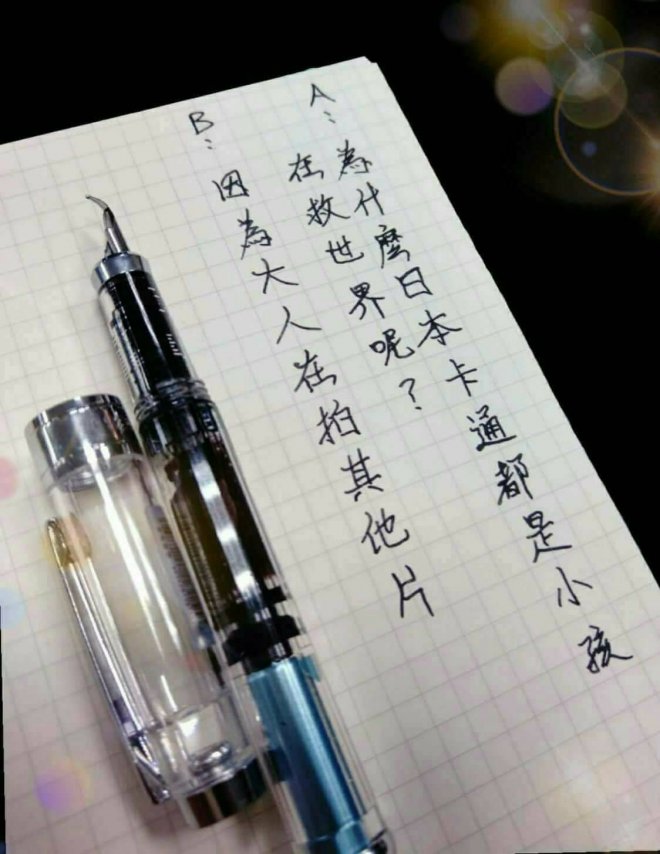 A：為什麼日本卡通都是小孩
在救世界呢？
B：因為大人在拍其他片